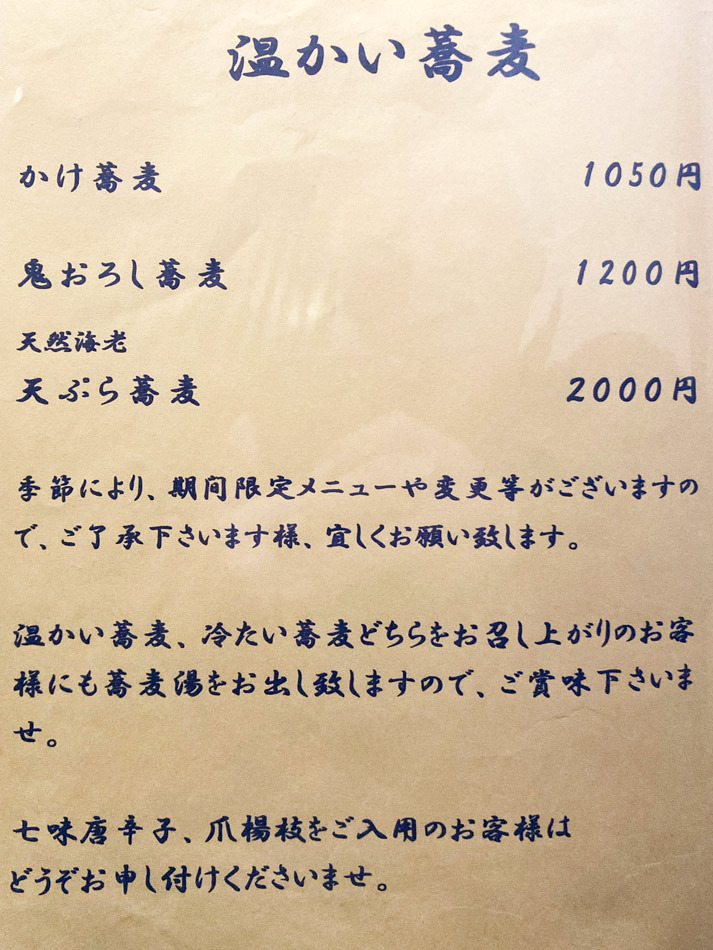 温かい蕎麦
かけ蕎麦 1050円
鬼おろし蕎麦 1200円
天然海老
天ぷら蕎麦 2000円
季節により、期間限定メニューや変更等がございますの
で、ご了承下さいます様、宜しくお願い致します。
温かい蕎麦、冷たい蕎麦どちらをお召し上がりのお客
様にも蕎麦湯をお出し致しますので、ご賞味下さいま
せ。
七味唐辛子、爪楊枝をご入用のお客様は
どうぞお申し付けくださいませ。